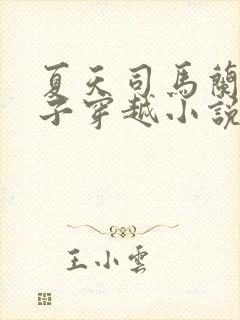 夏天司馬蘭
子穿越小說
王小雲